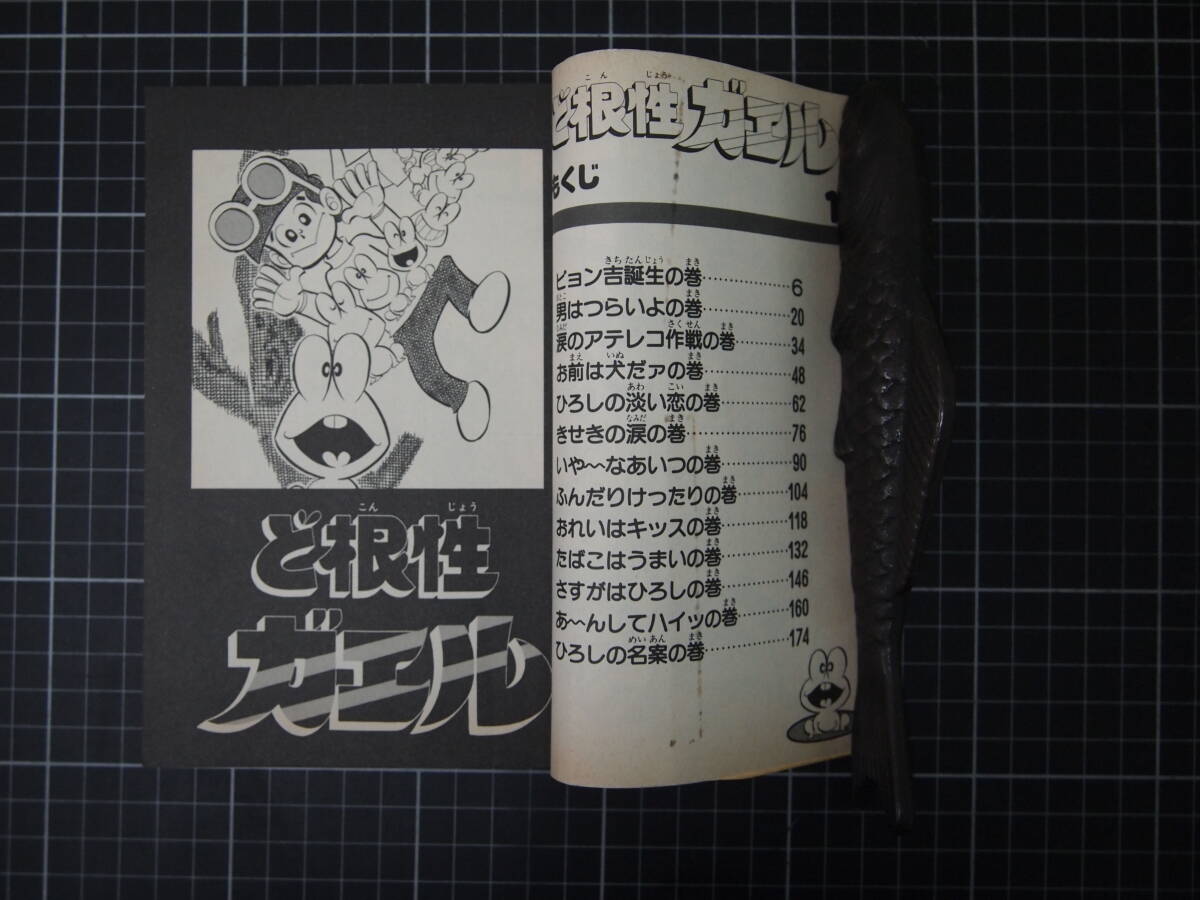 ど根性
ガエル
ど根性ガエル
もくじ
1
ピョン吉誕生の巻……………6
男はつらいよの巻……………20
涙のアテレコ作戦の巻………34
お前は犬だァの巻……………48
ひろしの淡い恋の巻…………62
きせきの涙の巻………………76
いや〜〜なあいつの巻…………90
ふんだりけったりの巻………104
おれいはキッスの巻…………118
たばこはうまいの巻…………132
さすがはひろしの巻…………146
あ〜〜んしてハイッの巻………160
ひろしの名案の巻……………174